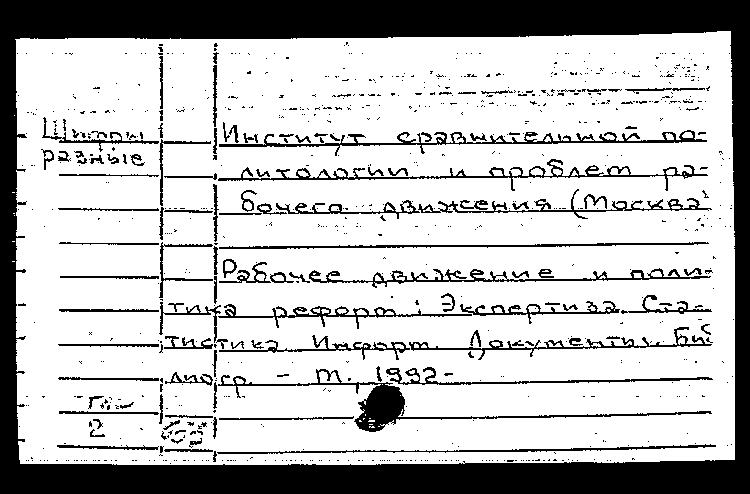 Шифры
разные
Институт сравнительной по-
литологии и проблем ра-
бочего движения (Москва)
Рабочее движение и поли-
тика реформ: Экспертиза. Ста-
тистика. Информ. Документы. Биб
лиогр. - М., 1992-
2